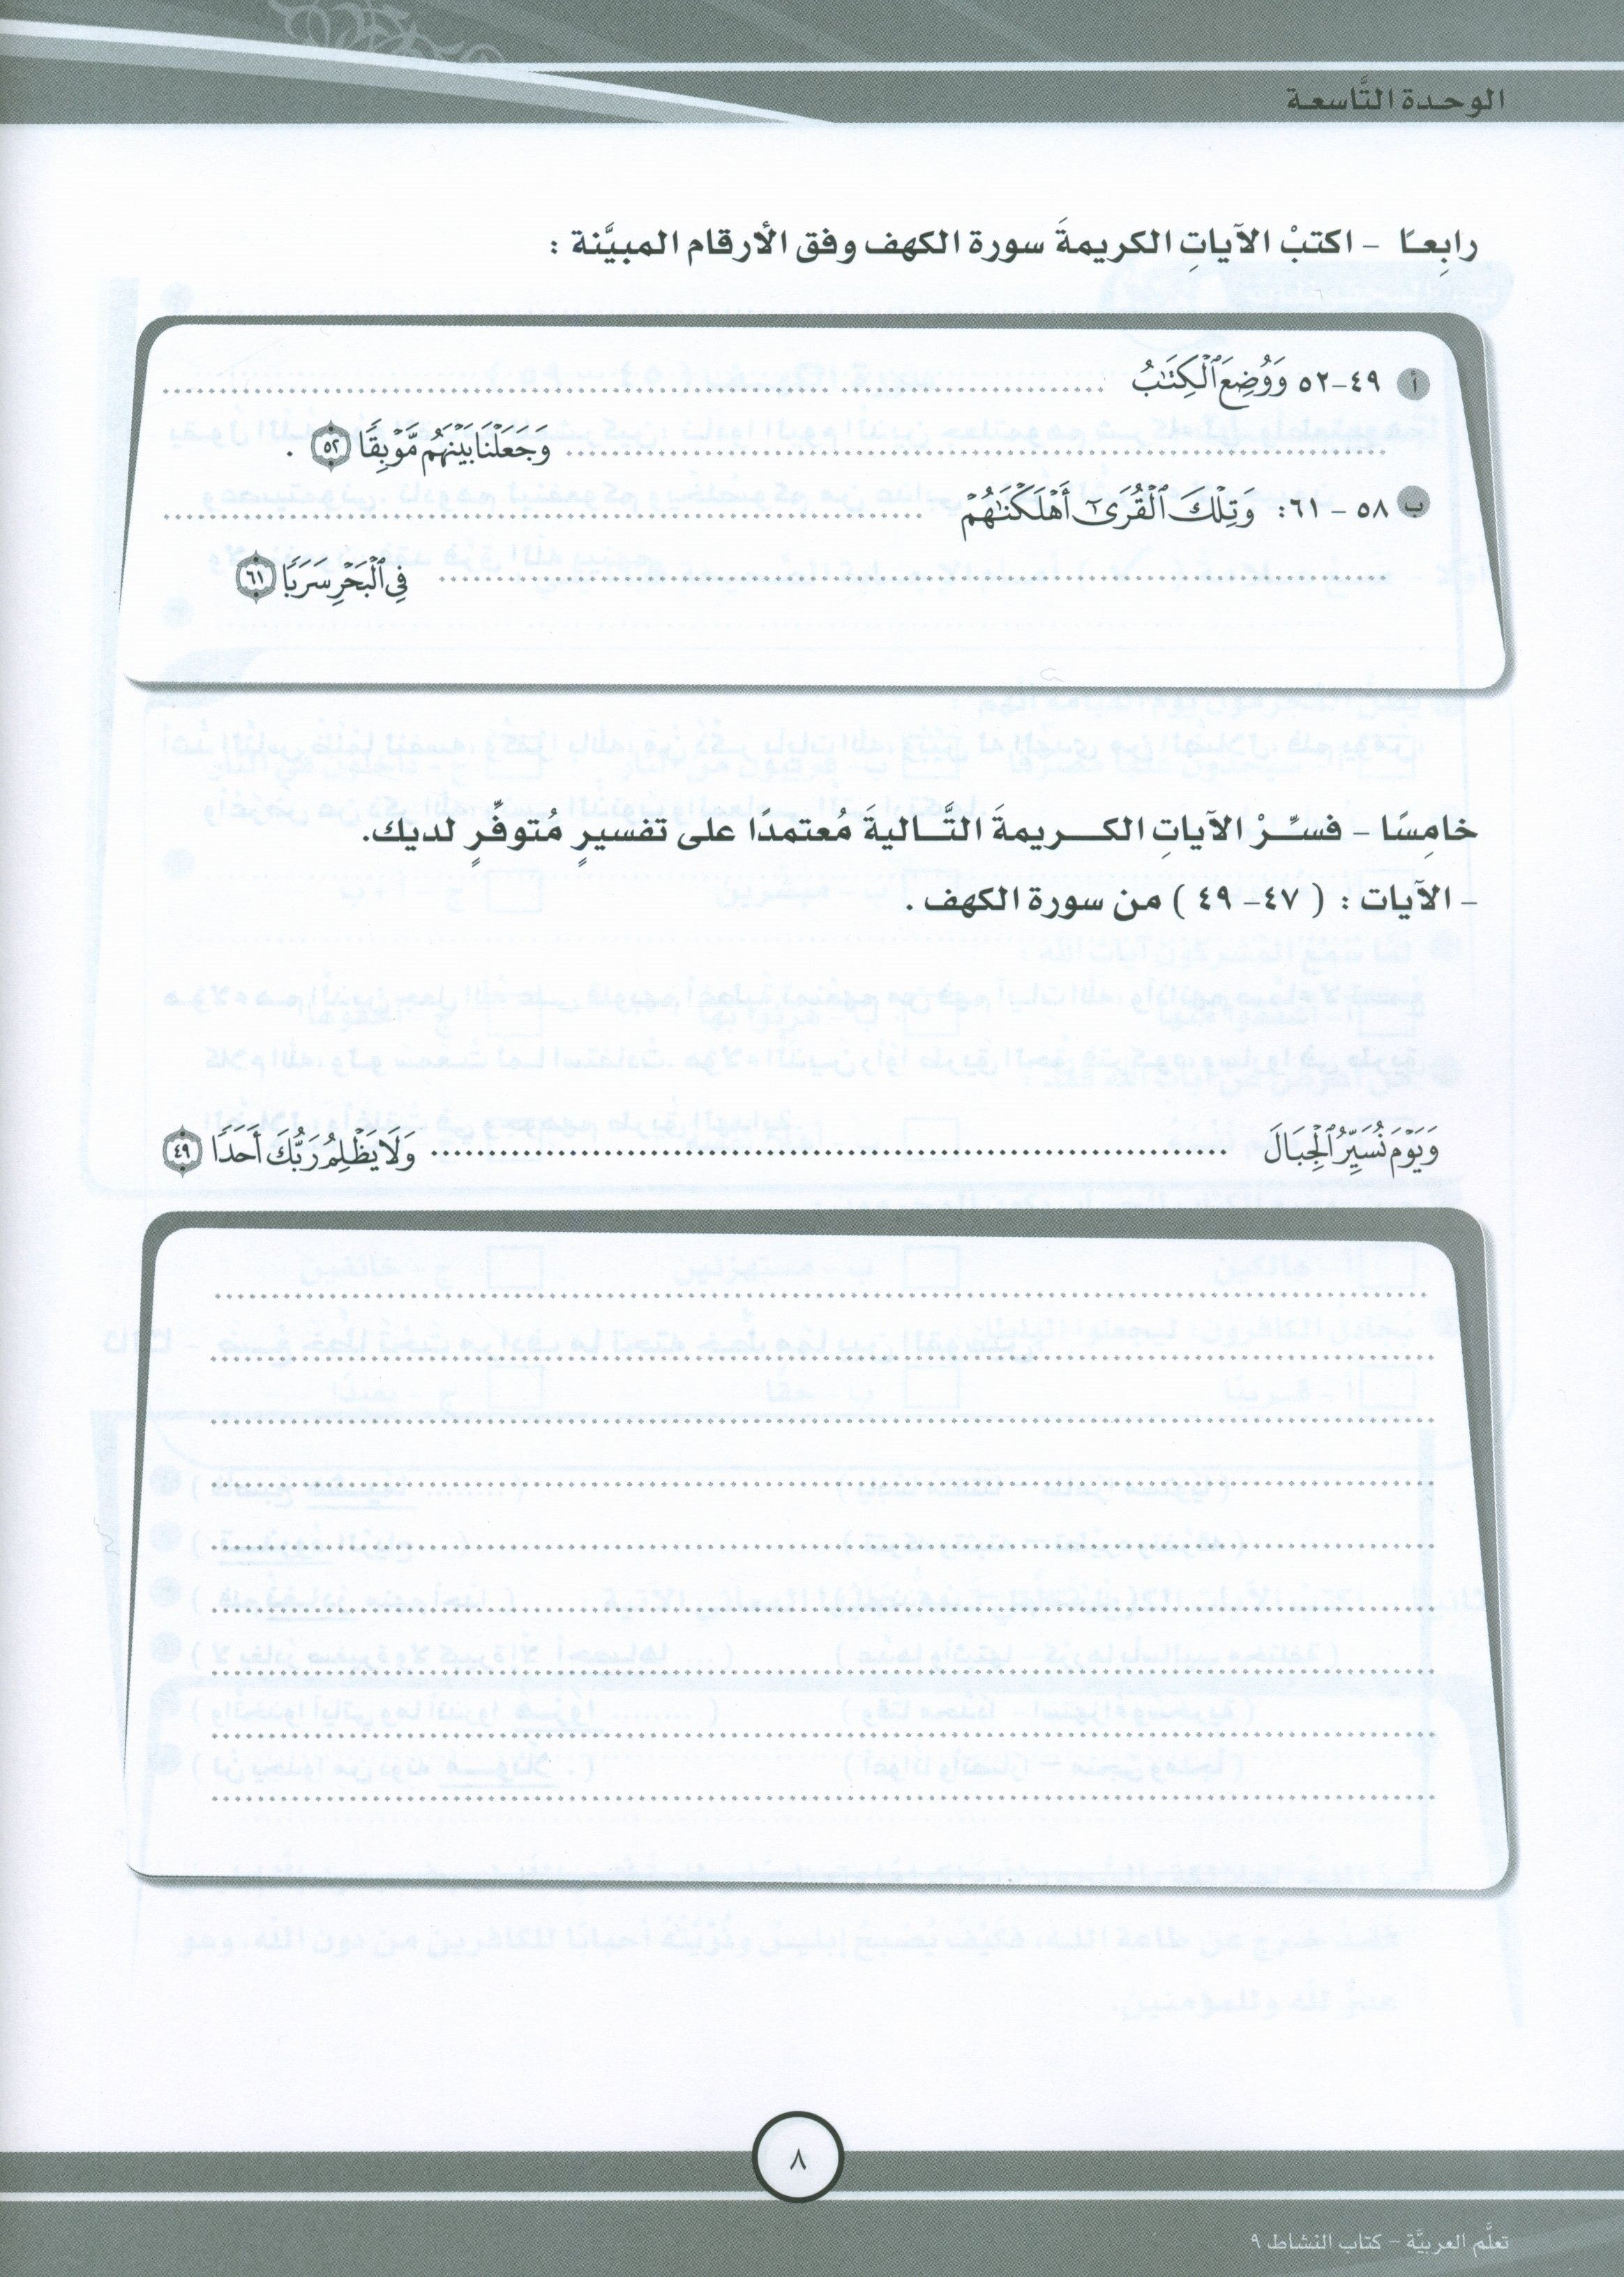 الوحدة التَّاسعة
رابِعًا – اكتبْ الآياتِ الكريمةَ سورة الكهف وفق الأرقام المبيَّنة :
أ ٤٩–٥٢ وَوُضِعَ ٱلْكِتَٰبُ ........................
........................ وَجَعَلْنَا بَيْنَهُم مَّوْبِقًا ٥٢ .
ب ٥٨ – ٦١: وَتِلْكَ ٱلْقُرَىٰٓ أَهْلَكْنَٰهُمْ ........................
........................ فِى ٱلْبَحْرِ سَرَبًا ٦١
خامِسًا – فسِّرْ الآياتِ الكريمةَ التَّاليةَ مُعتمدًا على تفسيرٍ مُتوفِّرٍ لديك.
– الآيات : ( ٤٧– ٤٩ ) من سورة الكهف .
وَيَوْمَ نُسَيِّرُ ٱلْجِبَالَ ........................ وَلَا يَظْلِمُ رَبُّكَ أَحَدًا ٤٩
٨
تعلَّم العربيَّة – كتاب النشاط ٩